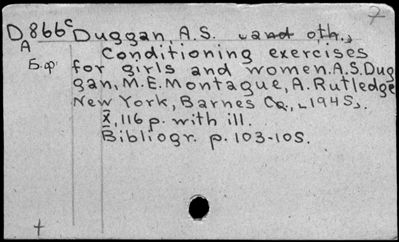 7
D866c Duggan, A.S. and oth.,
A Conditioning exercises
Б.ф. for girls and women. A.S. Dug
gan, M.E. Montague, A. Rutledge
New York, Barnes Co., 1945,.
x̄, 116 p. with ill.
Bibliogr. p. 103-105.
+